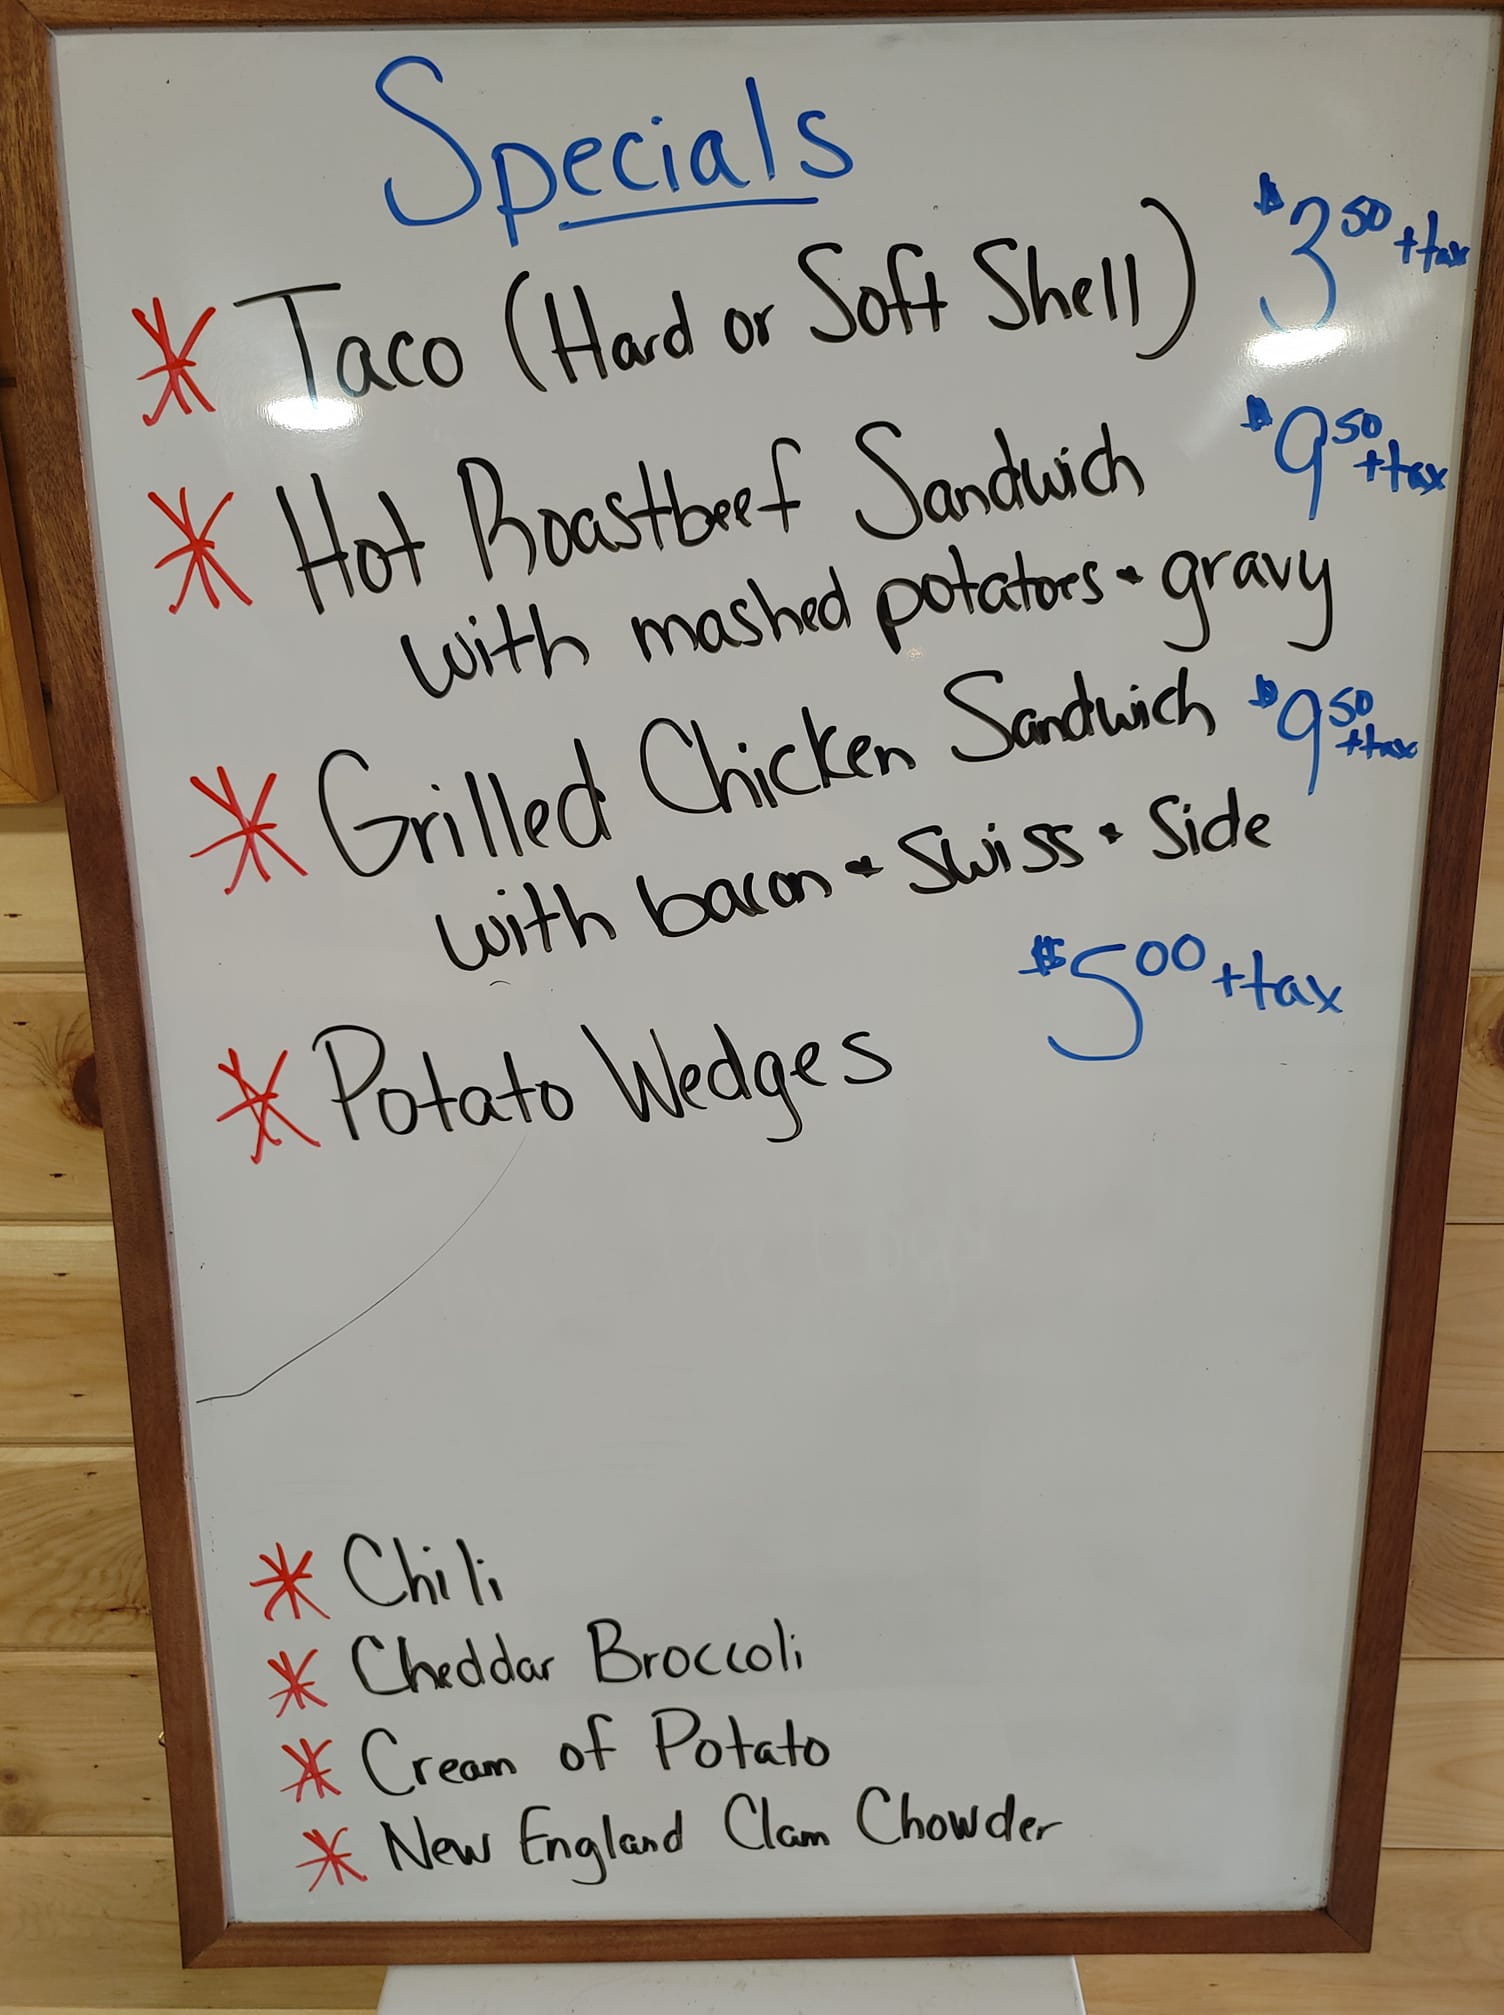 Specials
* Taco (Hard or Soft Shell) $3.50 +tax
* Hot Roastbeef Sandwich $9.50 +tax
with mashed potatoes + gravy
* Grilled Chicken Sandwich $9.50 +tax
with bacon + Swiss + Side
$5.00 +tax
* Potato Wedges
* Chili
* Cheddar Broccoli
* Cream of Potato
* New England Clam Chowder